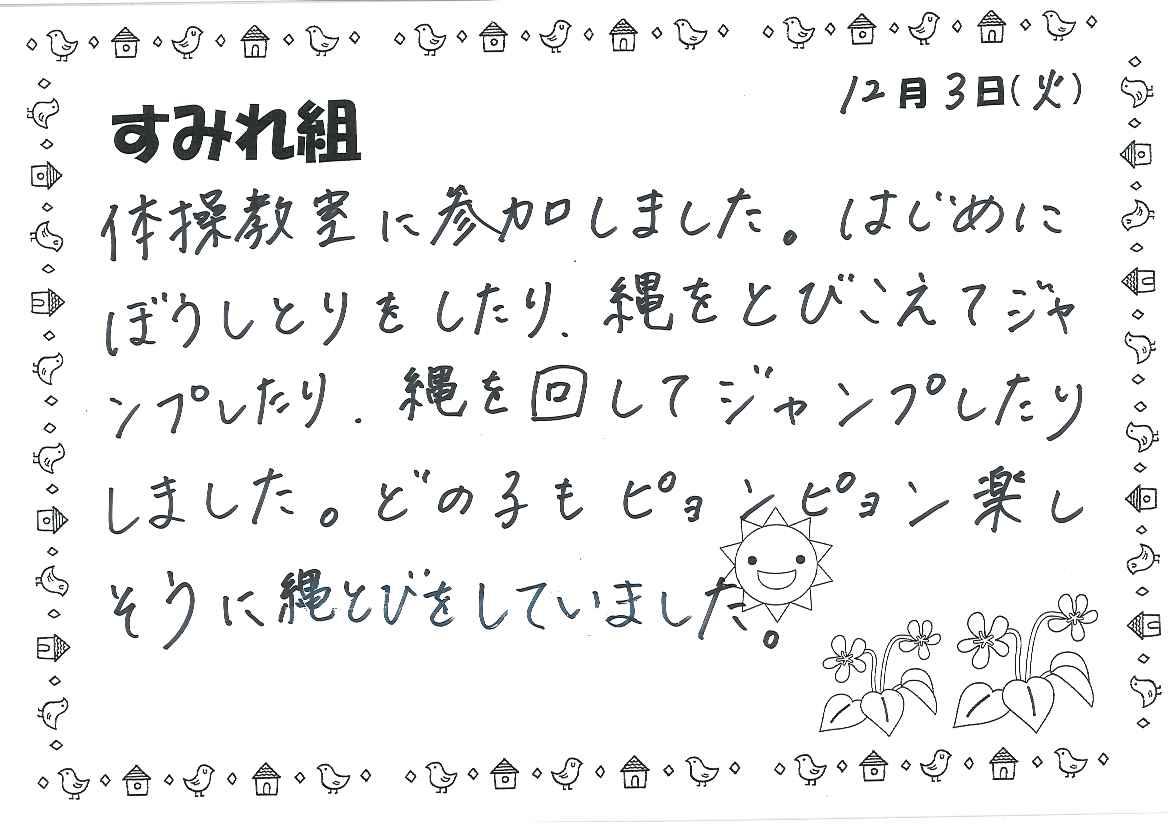 12月3日(火)
すみれ組
体操教室に参加しました。はじめに
ぼうしとりをしたり、縄をとびこえてジャ
ンプしたり、縄を回してジャンプしたり
しました。どの子もピョンピョン楽し
そうに縄とびをしていました。